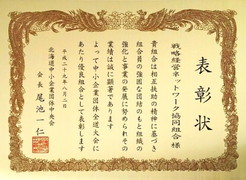 表彰状
戦略経営ネットワーク協同組合 様
貴組合は相互扶助の精神に基づき
組合員の強固な団結のもと組織の
強化と事業の発展に努められその
業績は誠に顕著であります
よって中小企業団体全道大会に
あたり優良組合として表彰します
平成二十九年八月三日
北海道中小企業団体中央会
会長 尾池一仁